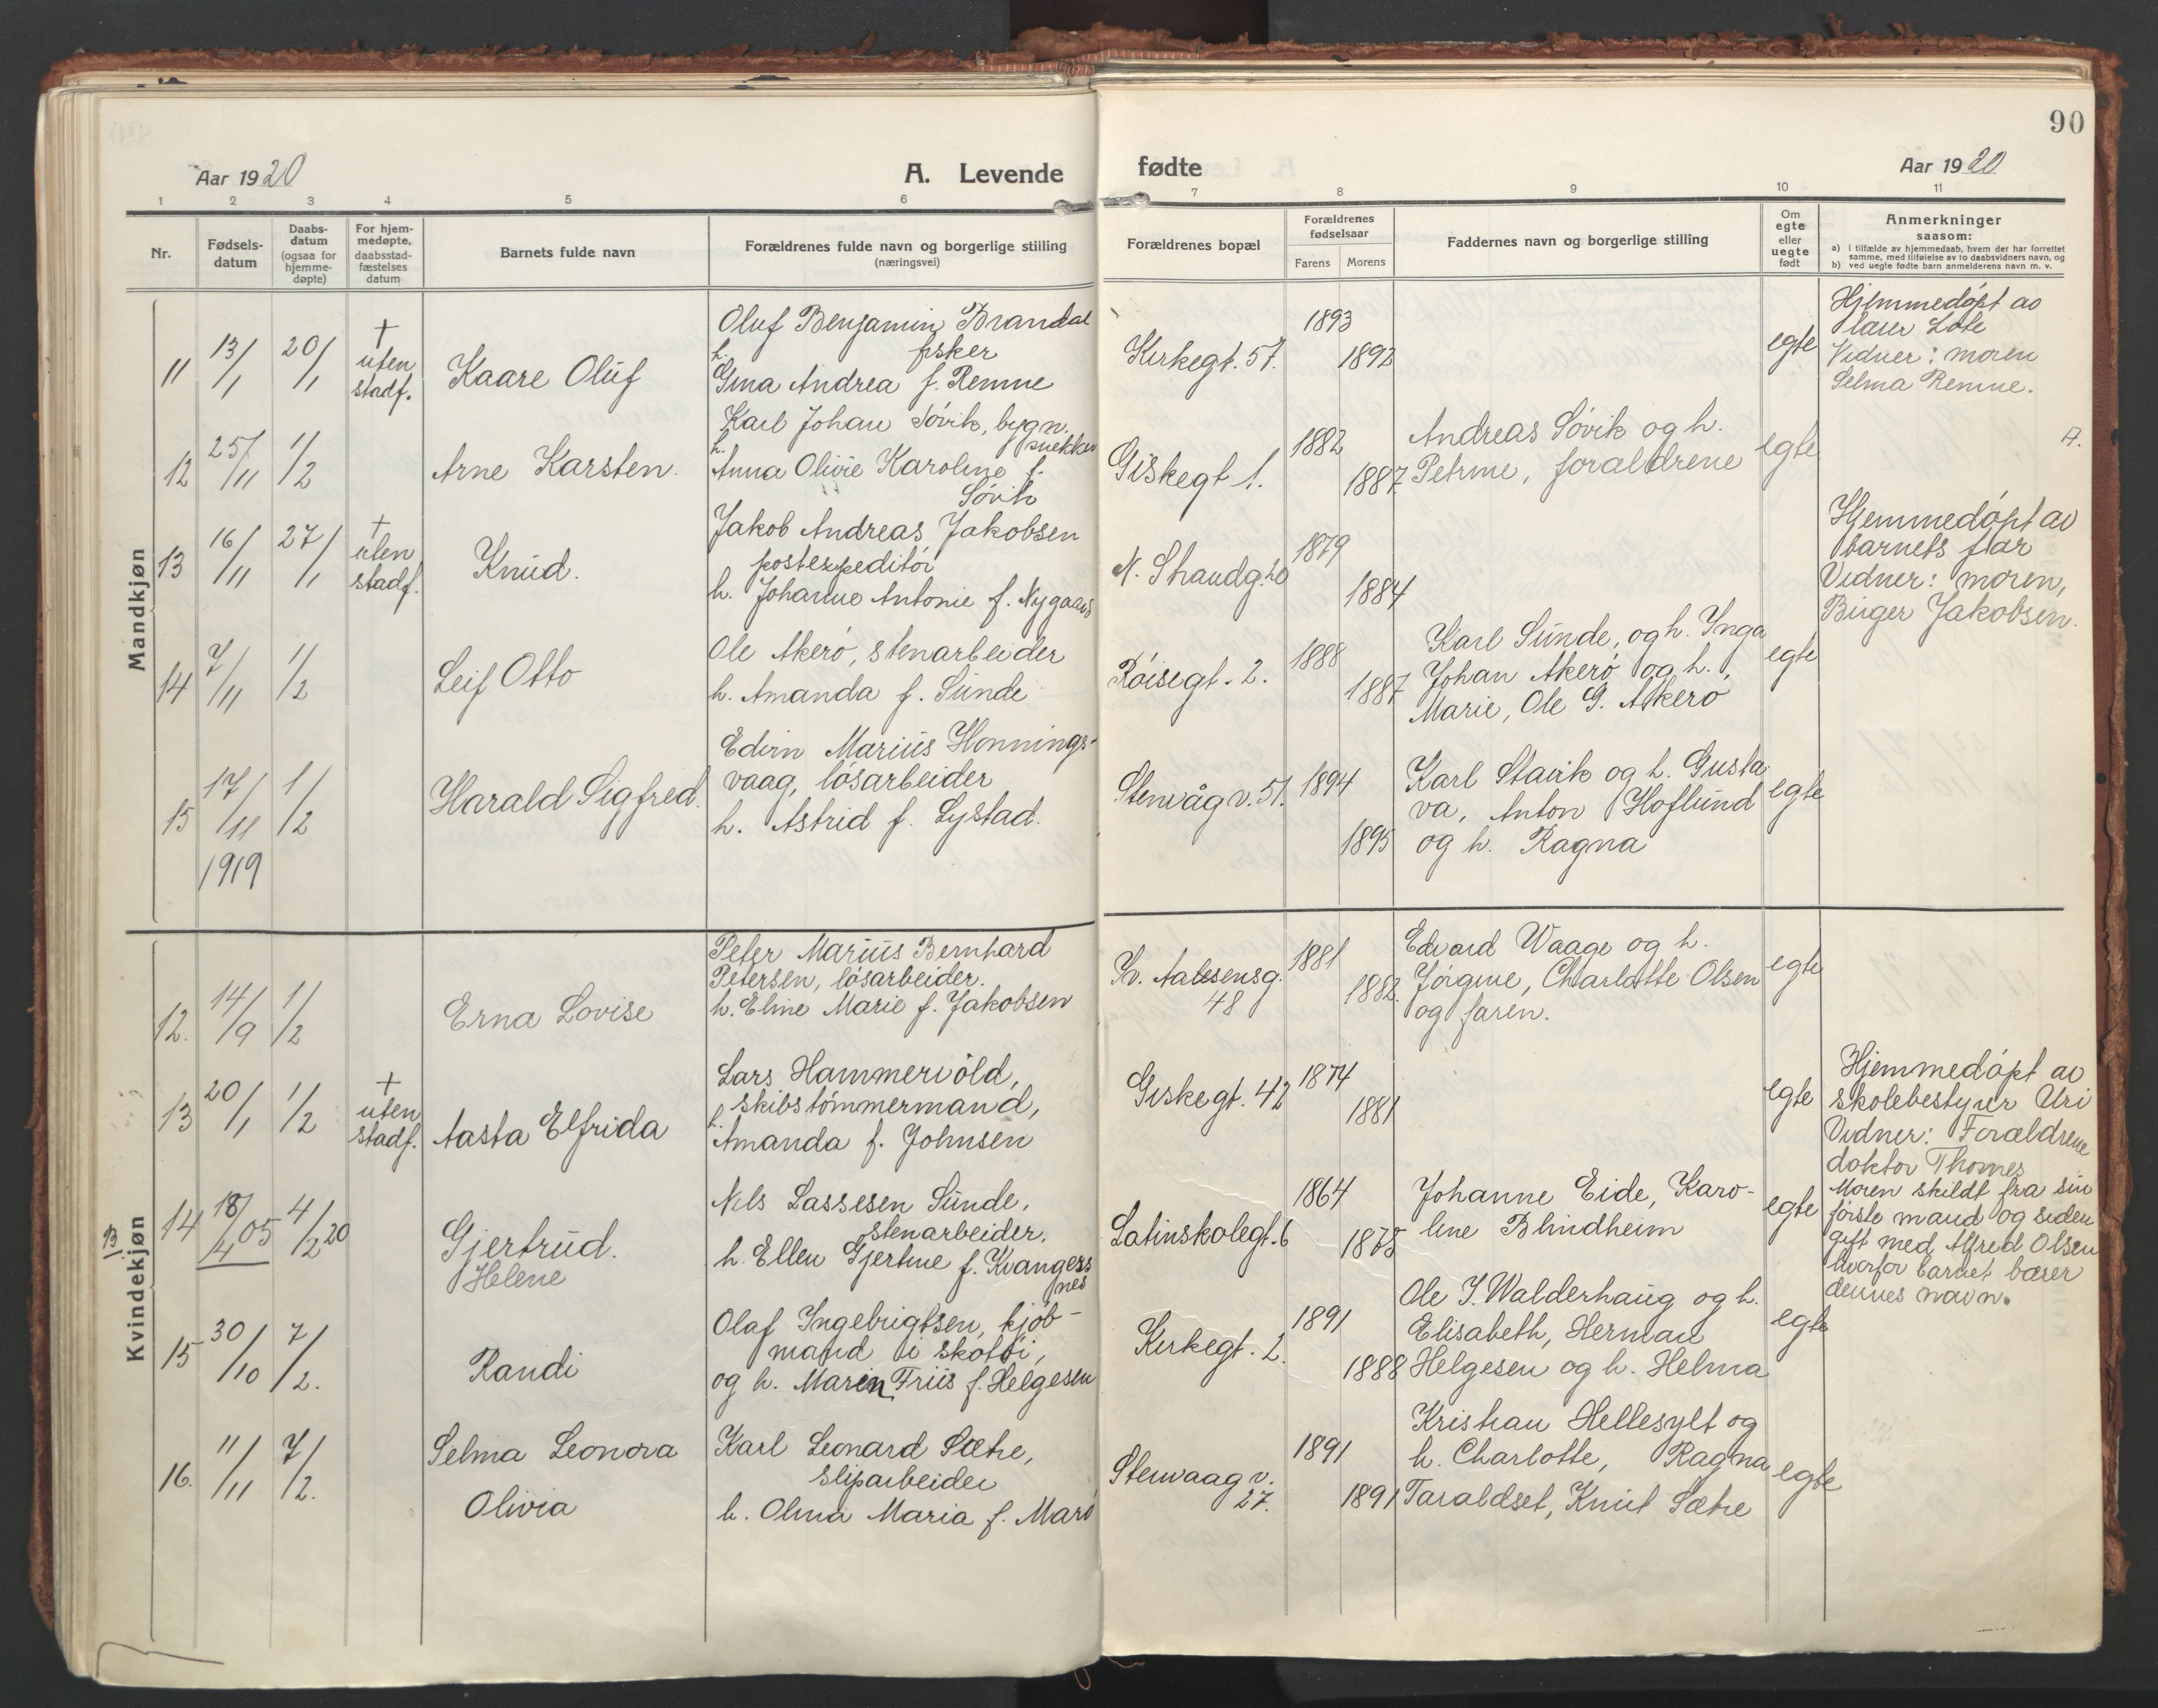 90
Aar 1920
A. Levende
fødte
Aar 1920
1 2 3 4 5 6 7 8 9 10 11
Nr.
Fødsels-
datum
Daabs-
datum
(ogsaa for
hjemme-
døpte)
For hjem-
medøpte,
daabsstad-
fæstelses
datum
Barnets fulde navn
Forældrenes fulde navn og borgerlige stilling
(næringsvei)
Forældrenes bopæl
Forældrenes
fødselsaar
Farens Morens
Faddernes navn og borgerlige stilling
Om
egte
eller
uegte
født
Anmerkninger
saasom:
a) I tilfælde av hjemmedaab, hvem der har forrettet
samme, med tilføielse av to daabsvidners navn, og
b) ved uegte fødte barn anmelderens navn m. v.
Mandkjøn
11
13/1
20/1
+
uten
stadf.
Kaare Oluf
Oluf Benjamin Brandal
fisker
h.
Gina Andrea f. Remme
Kirkegt. 57.
1893
1892
egte
Hjemmedøpt av
lærer Lote
Vidner: moren
Selma Remme.
12
25/11
1/2
Arne Karsten.
Karl Johan Søvik, bygn.
snekker
h.
Anna Olivie Karoline f.
Søvik
Giskegt 1.
1882
1887
Andreas Søvik og h.
Petrine, forældrene
egte
A.
13
16/11
27/1
+
uten
stadf.
Knud.
Jakob Andreas Jakobsen
postexpeditør
h. Johanne Antonie f. Nygaard
N. Strandg. 20
1879
1884
Hjemmedøpt av
barnets far
Vidner: moren,
Birger Jakobsen.
14
7/11
1/2
Leif Otto
Ole Akerø, stenarbeider
h. Amanda f. Sunde
Røisegt. 2.
1888
1887
Karl Sunde, og h. Inga
Johan Akerø og h.,
Marie, Ole G. Akerø
egte
15
17/11
1/2
1919
Harald Sigfred.
Edvin Marius Honnings-
vaag, løsarbeider
h. Astrid f. Lystad.
Stenvåg v. 51.
1894
1895
Karl Stavik og h. Gusta
va, Anton Hoflund
og h. Ragna
egte
Kvindekjøn
12.
14/9
1/2
Erna Lovise
Peter Marius Bernhard
Petersen, løsarbeider.
h. Eline Marie f. Jakobsen
Iv. Aalesensg.
48
1881
1882.
Edvard Waage og h.
Jørgine, Charlotte Olsen
og faren.
egte
13
20/1
1/2
+
uten
stadf.
Aasta Elfrida
Lars Hammervold,
skibstømmermand,
h.
Amanda f. Johnsen
Giskegt. 42
1874
1881
egte
Hjemmedøpt av
skolebestyrer Uri
Vidner: Forældrene
doktor Thomes
B.
14
18/4 05
4/2 20
Gjertrud.
Helene
Nils Lassesen Sunde,
stenarbeider.
h. Ellen Gjertine f. Kvanges
nes
Latinskolegt. 6
1864
1875
Johanne Eide, Karo-
line Blindheim
egte
Moren skildt fra sin
første mand og siden
gift med Alfred Olsen
hvorfor barnet bærer
dennes navn.
15
30/10
7/2.
Randi
Olaf Ingebrigtsen, kjøb-
mand i skotøi,
og h. Maren Friis f. Helgesen
Kirkegt. 2.
1891
1888
Ole I. Walderhaug og h.
Elisabeth, Herman
Helgesen og h. Helma
egte
16.
11/11
7/2.
Selma Leonora
Olivia
Karl Leonard Sætre,
sliparbeider
h. Olina Maria f. Marø
Stenvaag v.
27.
1891
1891
Kristian Hellesylt og
h. Charlotte, Ragna
Taraldset, Knut Sætre
egte